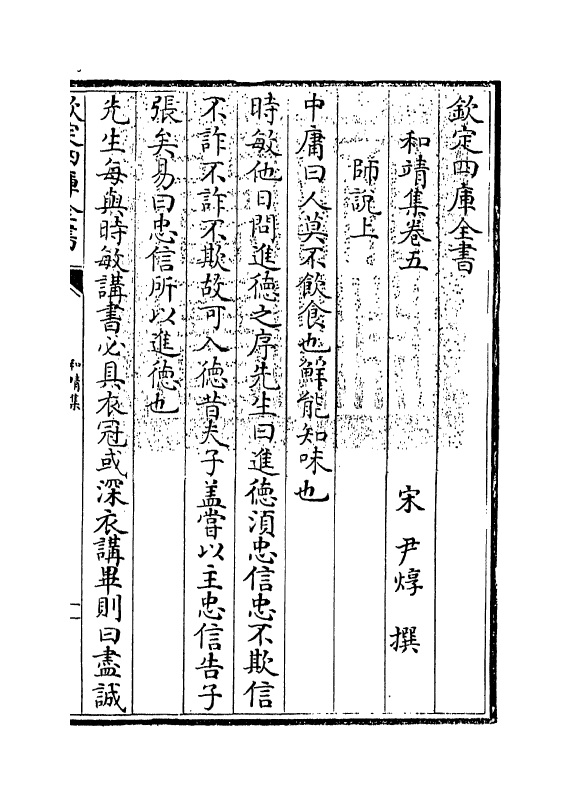 欽定四庫全書
和靖集卷五
宋 尹焞 撰
師說上
中庸曰人莫不飲食也鮮能知味也
時敏他日問進德之序先生曰進德須忠信忠不欺信
不詐不詐不欺故可入德昔夫子盖嘗以主忠信告子
張矣易曰忠信所以進德也
先生每與時敏講書必具衣冠或深衣講畢則曰盡誠
欽定四庫全書
和靖集
一